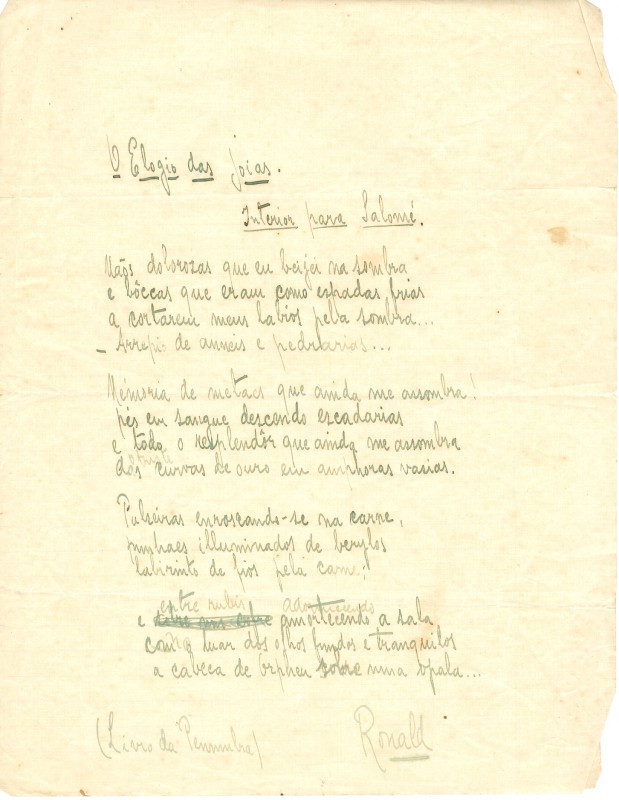 O Elogio das Joias.
Interior para Salomé.
Mãos dolorozas que eu beijei na sombra
e bôccas que eram como espadas frias
a cortarem meus labios pela sombra...
- Arrepio de anneis e pedrarias...
Mémoria de metaes que ainda me assombra!
pés em sangue descendo escadarias
e todo o resplendôr que ainda me assombra
das curvas de ouro em amphoras vasias.
Pulseiras enroscando-se na carne,
punhaes illuminados de beryllos
labirinto de fios pela carne,
entre rubis
e amortecendo a sala
com o luar dos olhos fundos e tranquilos
a cabeca de Orpheu sobre uma opala...
(Livro da Penumbra) Ronald